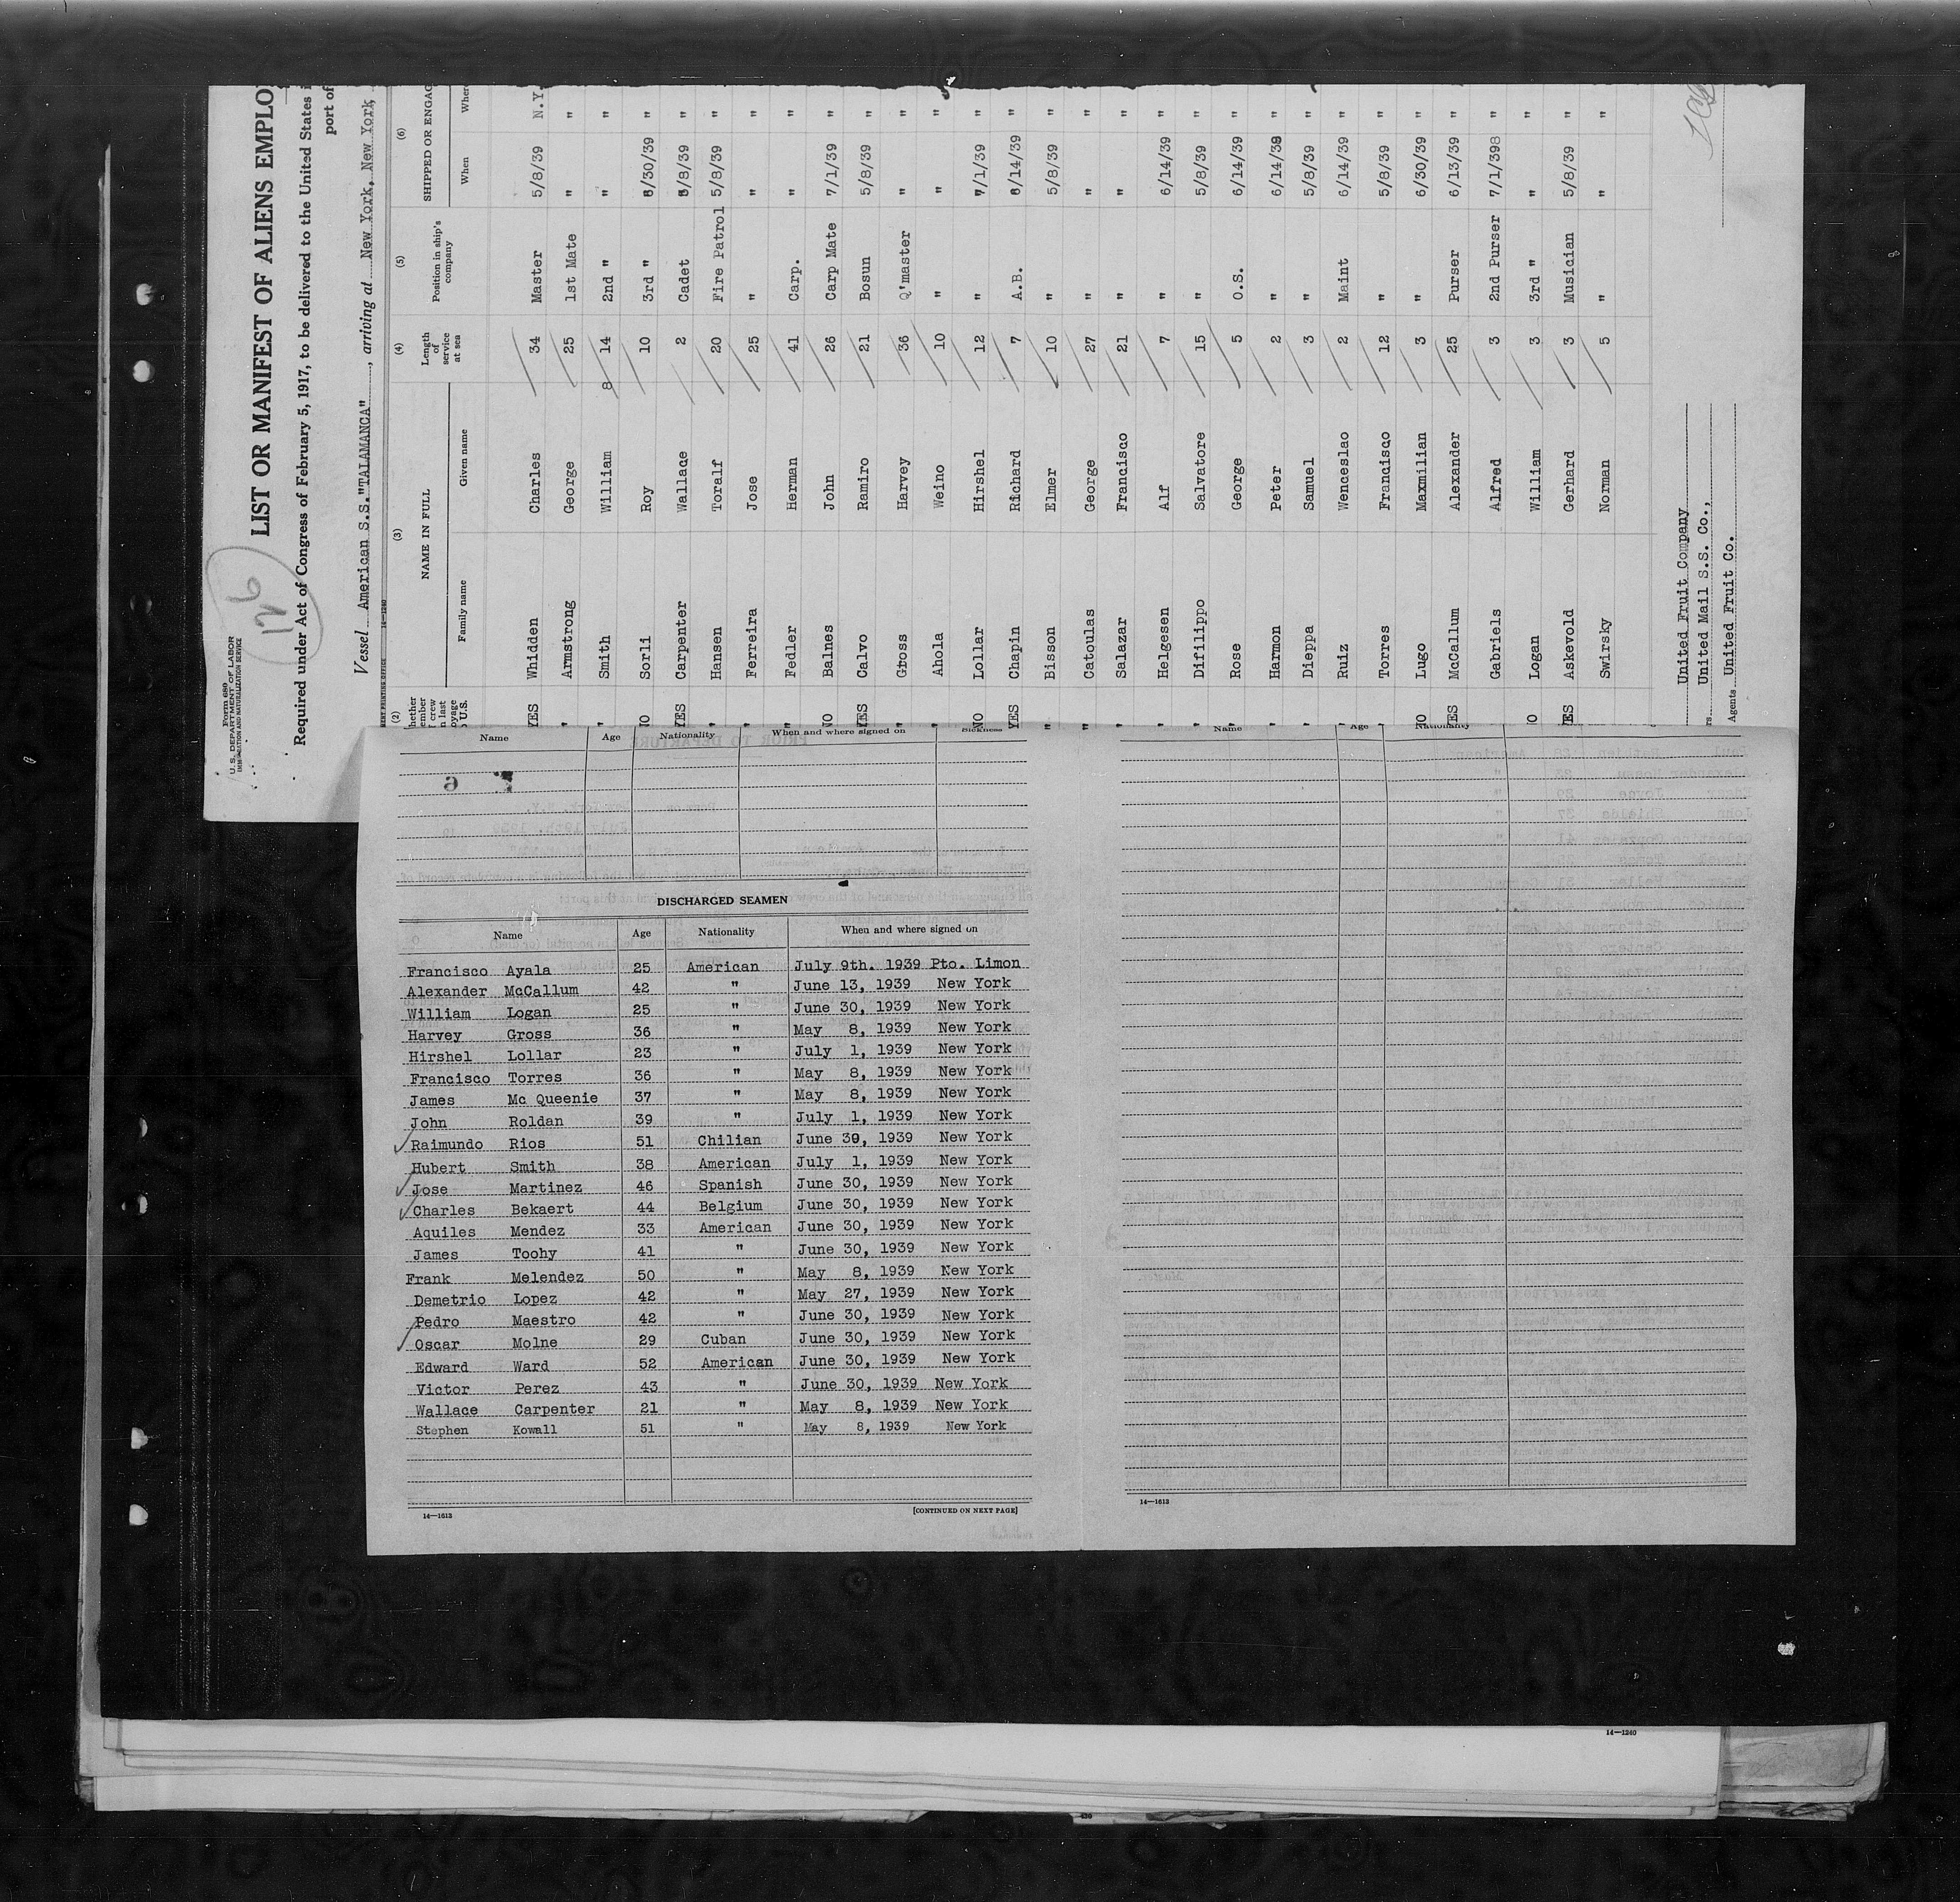 Form 689
U. S. DEPARTMENT OF LABOR
IMMIGRATION AND NATURALIZATION SERVICE
126
LIST OR MANIFEST OF ALIENS EMPLO
Required under Act of Congress of February 5, 1917, to be delivered to the United States i
port of
Vessel American S.S."TALAMANCA", arriving at New York, New York,
14—1240
(2) (3) (4) (5) (6)
NAME IN FULL Length of service at sea Position in ship's company SHIPPED OR ENGAG
Family name Given name When Where
YES Whidden Charles 34 Master 5/8/39 N.Y.
" Armstrong George 25 1st Mate " "
" Smith William 8 14 2nd " " "
NO Sorli Roy 10 3rd " 6/30/39 "
YES Carpenter Wallace 2 Cadet 5/8/39 "
" Hansen Toralf 20 Fire Patrol 5/8/39 "
" Ferreira Jose 25 " " "
" Fedler Herman 41 Carp. " "
NO Balnes John 26 Carp Mate 7/1/39 "
YES Calvo Ramiro 21 Bosun 5/8/39 "
" Gross Harvey 36 Q'master " "
" Ahola Weino 10 " " "
NO Lollar Hirshel 12 " 7/1/39 "
YES Chapin Richard 7 A.B. 6/14/39 "
" Bisson Elmer 10 " 5/8/39 "
" Catoulas George 27 " " "
" Salazar Francisco 21 " " "
" Helgesen Alf 7 " 6/14/39 "
" Difilippo Salvatore 15 " 5/8/39 "
" Rose George 5 O.S. 6/14/39 "
" Harmon Peter 2 " 6/14/39 "
" Dieppa Samuel 3 " 5/8/39 "
" Ruiz Wenceslao 2 Maint 6/14/39 "
" Torres Francisco 12 " 5/8/39 "
NO Lugo Maxmilian 3 " 6/30/39 "
YES McCallum Alexander 25 Purser 6/13/39 "
" Gabriels Alfred 3 2nd Purser 7/1/398 "
NO Logan William 3 3rd " " "
YES Askevold Gerhard 3 Musician 5/8/39 "
Swirsky Norman 5 " " "
United Fruit Company
United Mail S.S. Co.,
Agents United Fruit Co.
Name Age Nationality When and where signed on Sickness
Name Age Nationality
DISCHARGED SEAMEN
Name Age Nationality When and where signed on
Francisco Ayala 25 American July 9th. 1939 Pto. Limon
Alexander McCallum 42 " June 13, 1939 New York
William Logan 25 " June 30, 1939 New York
Harvey Gross 36 " May 8, 1939 New York
Hirshel Lollar 23 " July 1, 1939 New York
Francisco Torres 36 " May 8, 1939 New York
James Mc Queenie 37 " May 8, 1939 New York
John Roldan 39 " July 1, 1939 New York
Raimundo Rios 51 Chilian June 30, 1939 New York
Hubert Smith 38 American July 1, 1939 New York
Jose Martinez 46 Spanish June 30, 1939 New York
Charles Bekaert 44 Belgium June 30, 1939 New York
Aquiles Mendez 33 American June 30, 1939 New York
James Toohy 41 " June 30, 1939 New York
Frank Melendez 50 " May 8, 1939 New York
Demetrio Lopez 42 " May 27, 1939 New York
Pedro Maestro 42 " June 30, 1939 New York
Oscar Molne 29 Cuban June 30, 1939 New York
Edward Ward 52 American June 30, 1939 New York
Victor Perez 43 " June 30, 1939 New York
Wallace Carpenter 21 " May 8, 1939 New York
Stephen Kowall 51 " May 8, 1939 New York
14—1613
[CONTINUED ON NEXT PAGE]
14—1613
14—1240